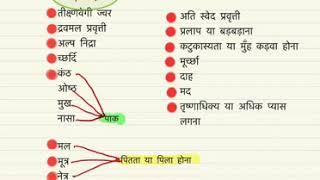 तीक्ष्णवेगी ज्वर
द्रवमल प्रवृत्ती
अल्प निद्रा
च्छर्दि
कंठ
ओष्ठ
मुख
नासा
पाक
मल
मूत्र
नेत्र
पितता या पिला होना
अति स्वेद प्रवृत्ती
प्रलाप या बड़बड़ाना
कटुकास्यता या मुँह कड़वा होना
मूर्च्छा
दाह
मद
तृष्णाधिक्य या अधिक प्यास
लगना